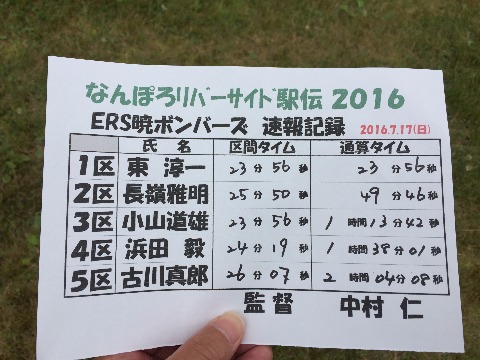 なんぽろリバーサイド駅伝 2016
ERS暁ボンバーズ 速報記録 2016.7.17(日)
氏 名 区間タイム 通算タイム
1区 東 淳一 23分56秒 23分56秒
2区 長嶺雅明 25分50秒 49分46秒
3区 小山道雄 23分56秒 1時間13分42秒
4区 浜田 毅 24分19秒 1時間38分01秒
5区 古川真郎 26分07秒 2時間04分08秒
監督 中村 仁